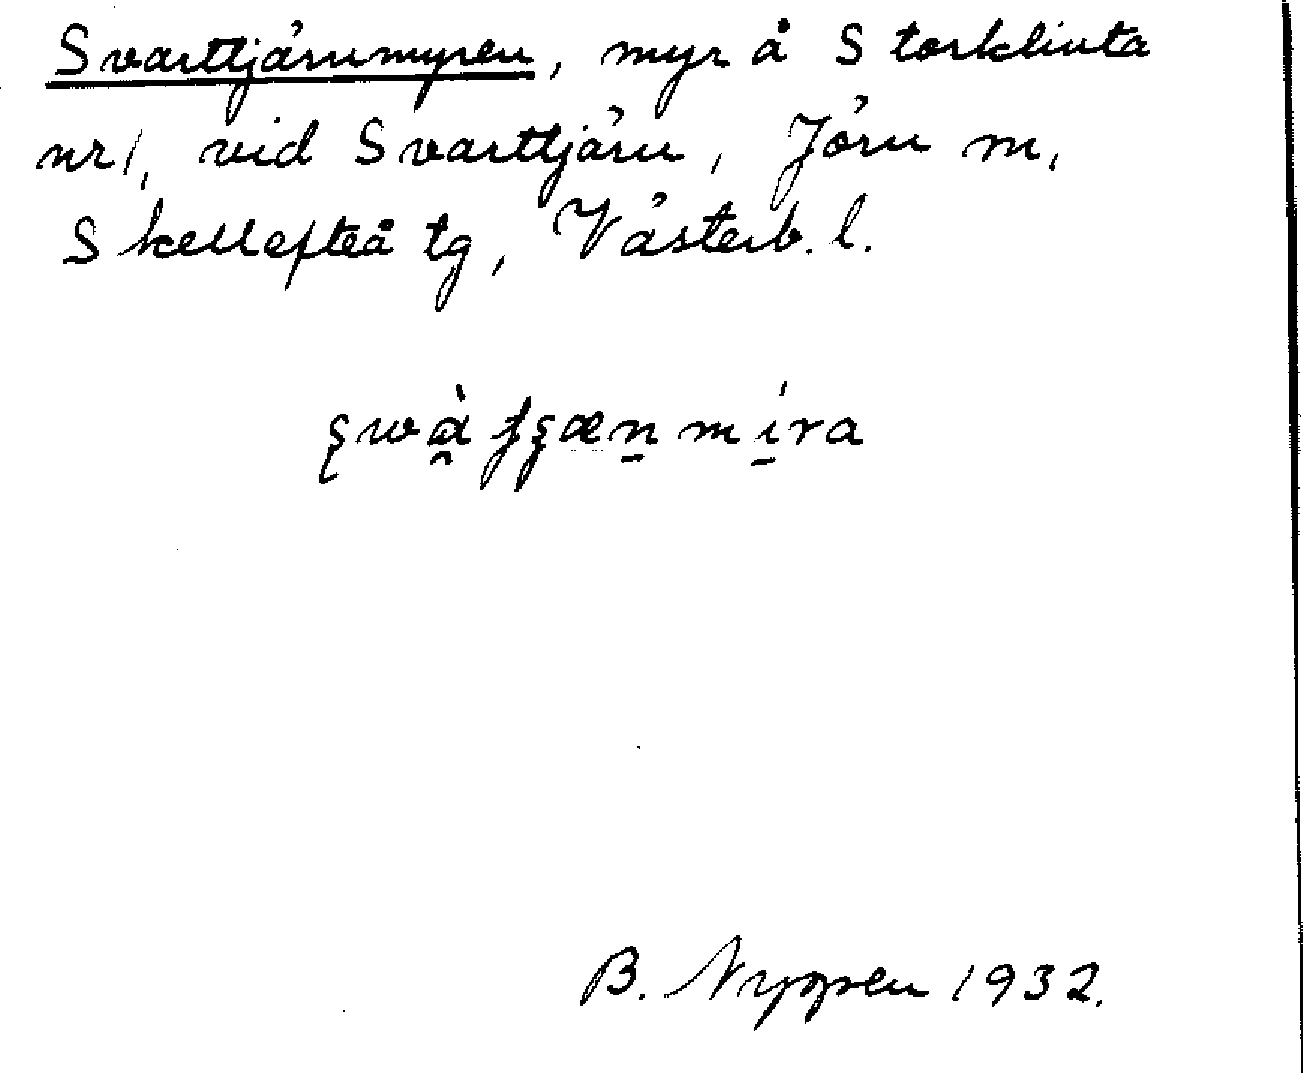 Svarttjärnmyren, myr å Storklinta
nr 1, vid Svarttjärn, Jörn m,
Skellefteå tg, Västerb. l.
B. Nygren 1932.